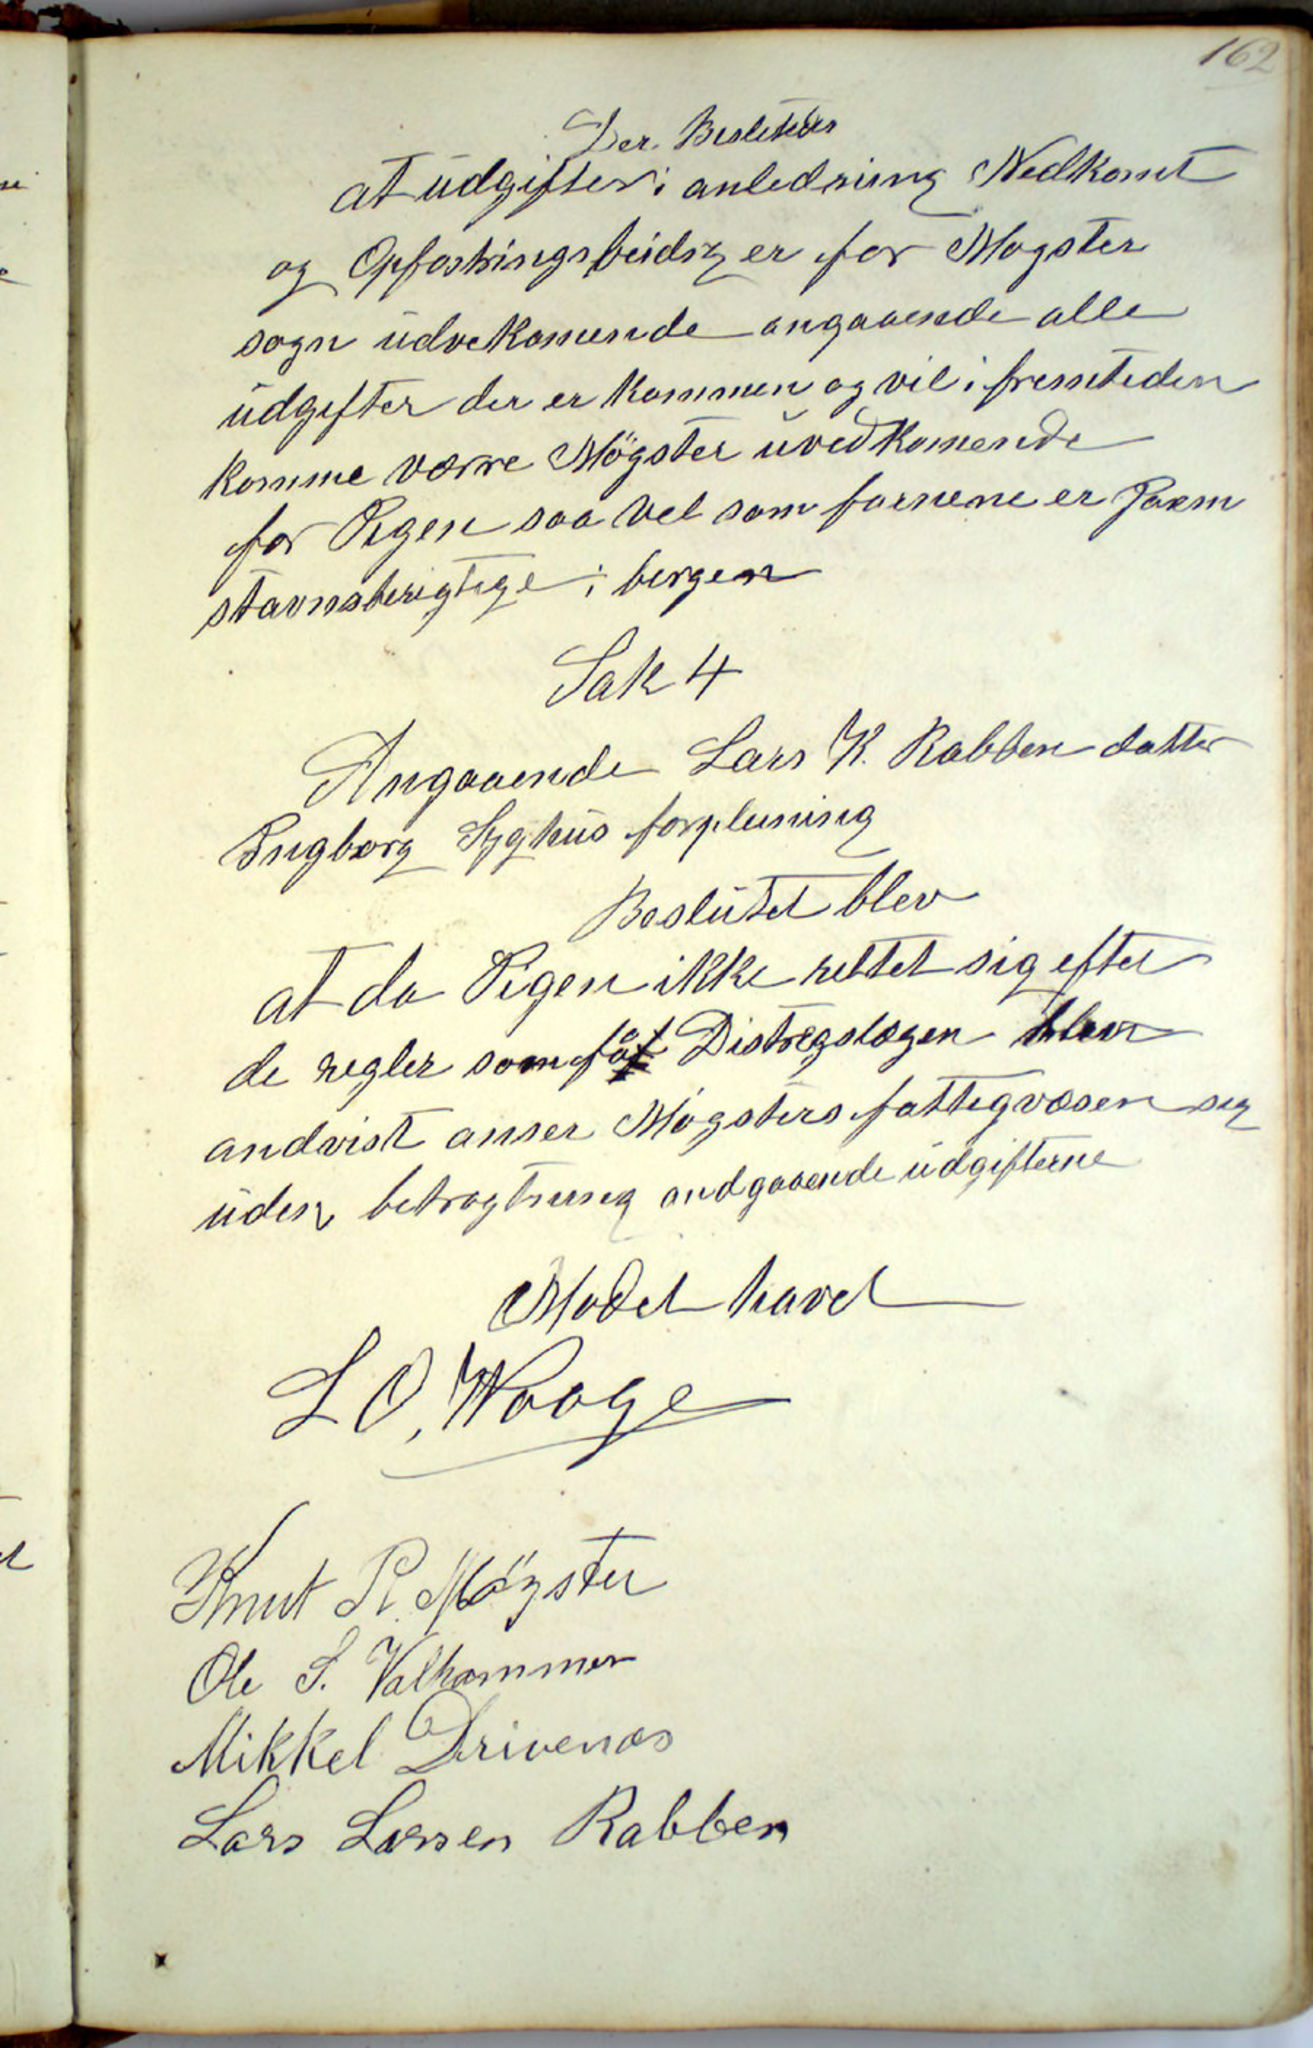 162
Der Besletedes
at udgifter i anledning Nedkomst
og Opfostringsbeidrg er for Møgster
sogn udvekomende angaaende alle
udgifter der er kommen og vil i fremteden
komme værre Møgster uvedkomende
for Pigen saa vel som farnene er
stavnsberigtige i bergen
Sak 4
Angaaende Lars K. Rabben datter
Ingborg Sygkus forpleining
Beslutet blev
at da Pigen ikke rettet sig efter
de regler som Distregslægen blev
andvist anser Møgsters fattigvæsen sig
uden betragtning andgaaende udgifterne
Mødet hævet
L O, Waage
Knut R. Møgster
Ole S. Valhammer
Mikkel Drivenæs
Lars Larsen Rabben